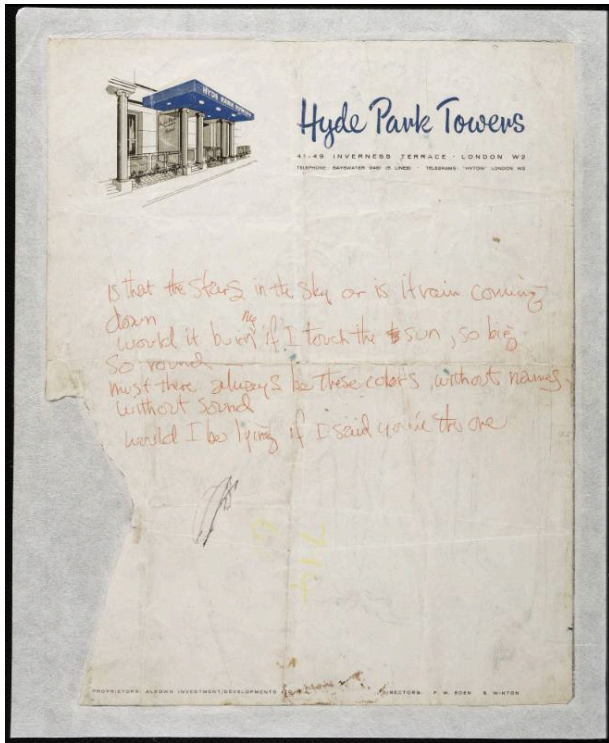 HYDE PARK TOWERS
Hyde Park Towers
41-49 INVERNESS TERRACE · LONDON W2
TELEPHONE: BAYSWATER 9461 (5 LINES) · TELEGRAMS: "HYTOW" LONDON W2
is that the stars in the sky or is it rain coming
down
would it burn me if I touch the sun, so big
so round
must there always be these colors, without names,
without sound
would I be lying if I said you're the one
714
PROPRIETORS: ALDOWN INVESTMENT/DEVELOPMENTS
DIRECTORS: P. W. EDEN S. WINTON